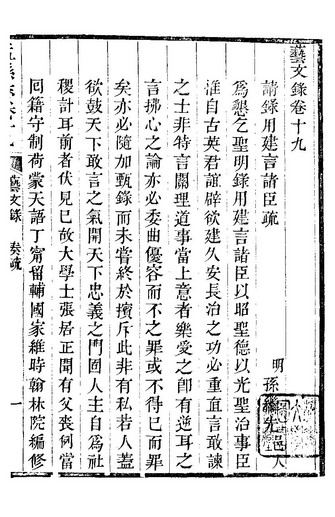 藝文錄卷十九
請錄用建言諸臣疏
明 孫繼先 邑人
爲懇乞聖明錄用建言諸臣以昭聖德以光聖治事臣
淮自古英君誼辟欲建久安長治之功必重直言敢諫
之士非特言關理道事當上意者樂愛之卽有逆耳之
言拂心之論亦必委曲優容而不之罪或不得已而罪
矣亦必隨加甄錄而未嘗終於擯斥此非有私若人蓋
欲鼓天下敢言之氣開天下忠義之門固人主自爲社
稷計耳前者伏見已故大學士張居正聞有父喪例當
回籍守制荷蒙天語丁甯留輔國家維時翰林院編修
藝文錄 奏疏
一